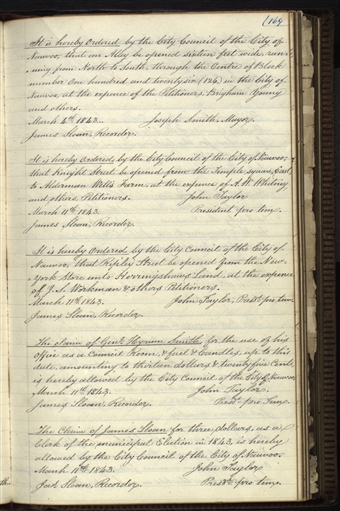 (169
It is hereby Ordered by the City Council of the City of
Nauvoo, that an Alley be opened sixteen feet wide, run-
-ning from North to South through the Centre of Block
number One hundred and twenty six (126) in the City of
Nauvoo, at the expense of the Petitioners; Brigham Young
and others.
March 4th 1843. Joseph Smith, Mayor.
James Sloan, Recorder.
It is hereby Ordered, by the City Council of the City of Nauvoo,
that Knight Street be opened from the Temple square, East
to Alderman Wells' Farm, at the expense of N. K. Whitney
and others, Petitioners. John Taylor
March 11th 1843. President pro tem.
James Sloan, Recorder.
It is hereby Ordered by the City Council of the City of
Nauvoo, that Ripley Street be opened from the New-
York Store unto Herringshaws Land, at the expense
of J. S. Workman & others Petitioners.
March 11th 1843. John Taylor, Presdt. pro tem.
James Sloan, Recorder.
The Claim of Genl. Hyrum Smith for the use of his
Office as a Council Room, & fuel & Candles, up to this
date, amounting to thirteen dollars & twenty five Cents,
is hereby allowed by the City Council of the City of Nauvoo.
March 11th 1843. John Taylor,
James Sloan, Recorder. Presdt. pro tem.
The Claim of James Sloan for three dollars, as a
Clerk of the municipal Election in 1843, is hereby
allowed by the City Council of the City of Nauvoo.
March 11th 1843. John Taylor
Jas. Sloan, Recorder. Presdt. pro tem.